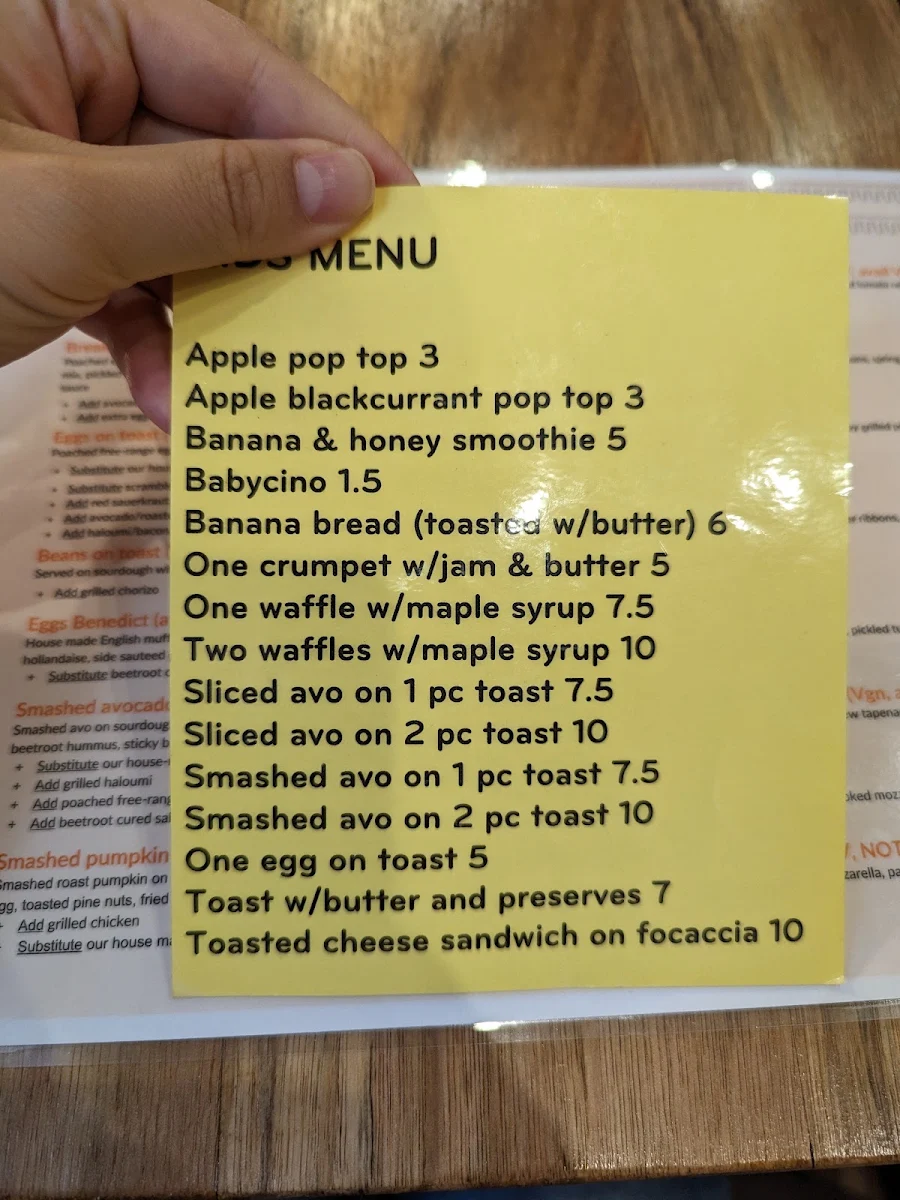 MENU
Apple pop top 3
Apple blackcurrant pop top 3
Banana & honey smoothie 5
Babycino 1.5
Banana bread (toasted w/butter) 6
One crumpet w/jam & butter 5
One waffle w/maple syrup 7.5
Two waffles w/maple syrup 10
Sliced avo on 1 pc toast 7.5
Sliced avo on 2 pc toast 10
Smashed avo on 1 pc toast 7.5
Smashed avo on 2 pc toast 10
One egg on toast 5
Toast w/butter and preserves 7
Toasted cheese sandwich on focaccia 10
Eggs on toast
+ Substitute our
+ Add red sauerkraut
Beans on toast
Served on sourdough
+ Add grilled chorizo
Eggs Benedict (a
House made English
hollandaise, side sauteed
+ Substitute beetroot
Smashed
Smashed avo on
beetroot hummus, sticky
+ Substitute our
+ Add grilled haloumi
+ Add poached
+ Add beetroot cured
Smashed pumpkin
Smashed roast pumpkin on
toasted pine nuts, fried
Add grilled chicken
Substitute our house
ribbons,
pickled
(Vgn,
NOT